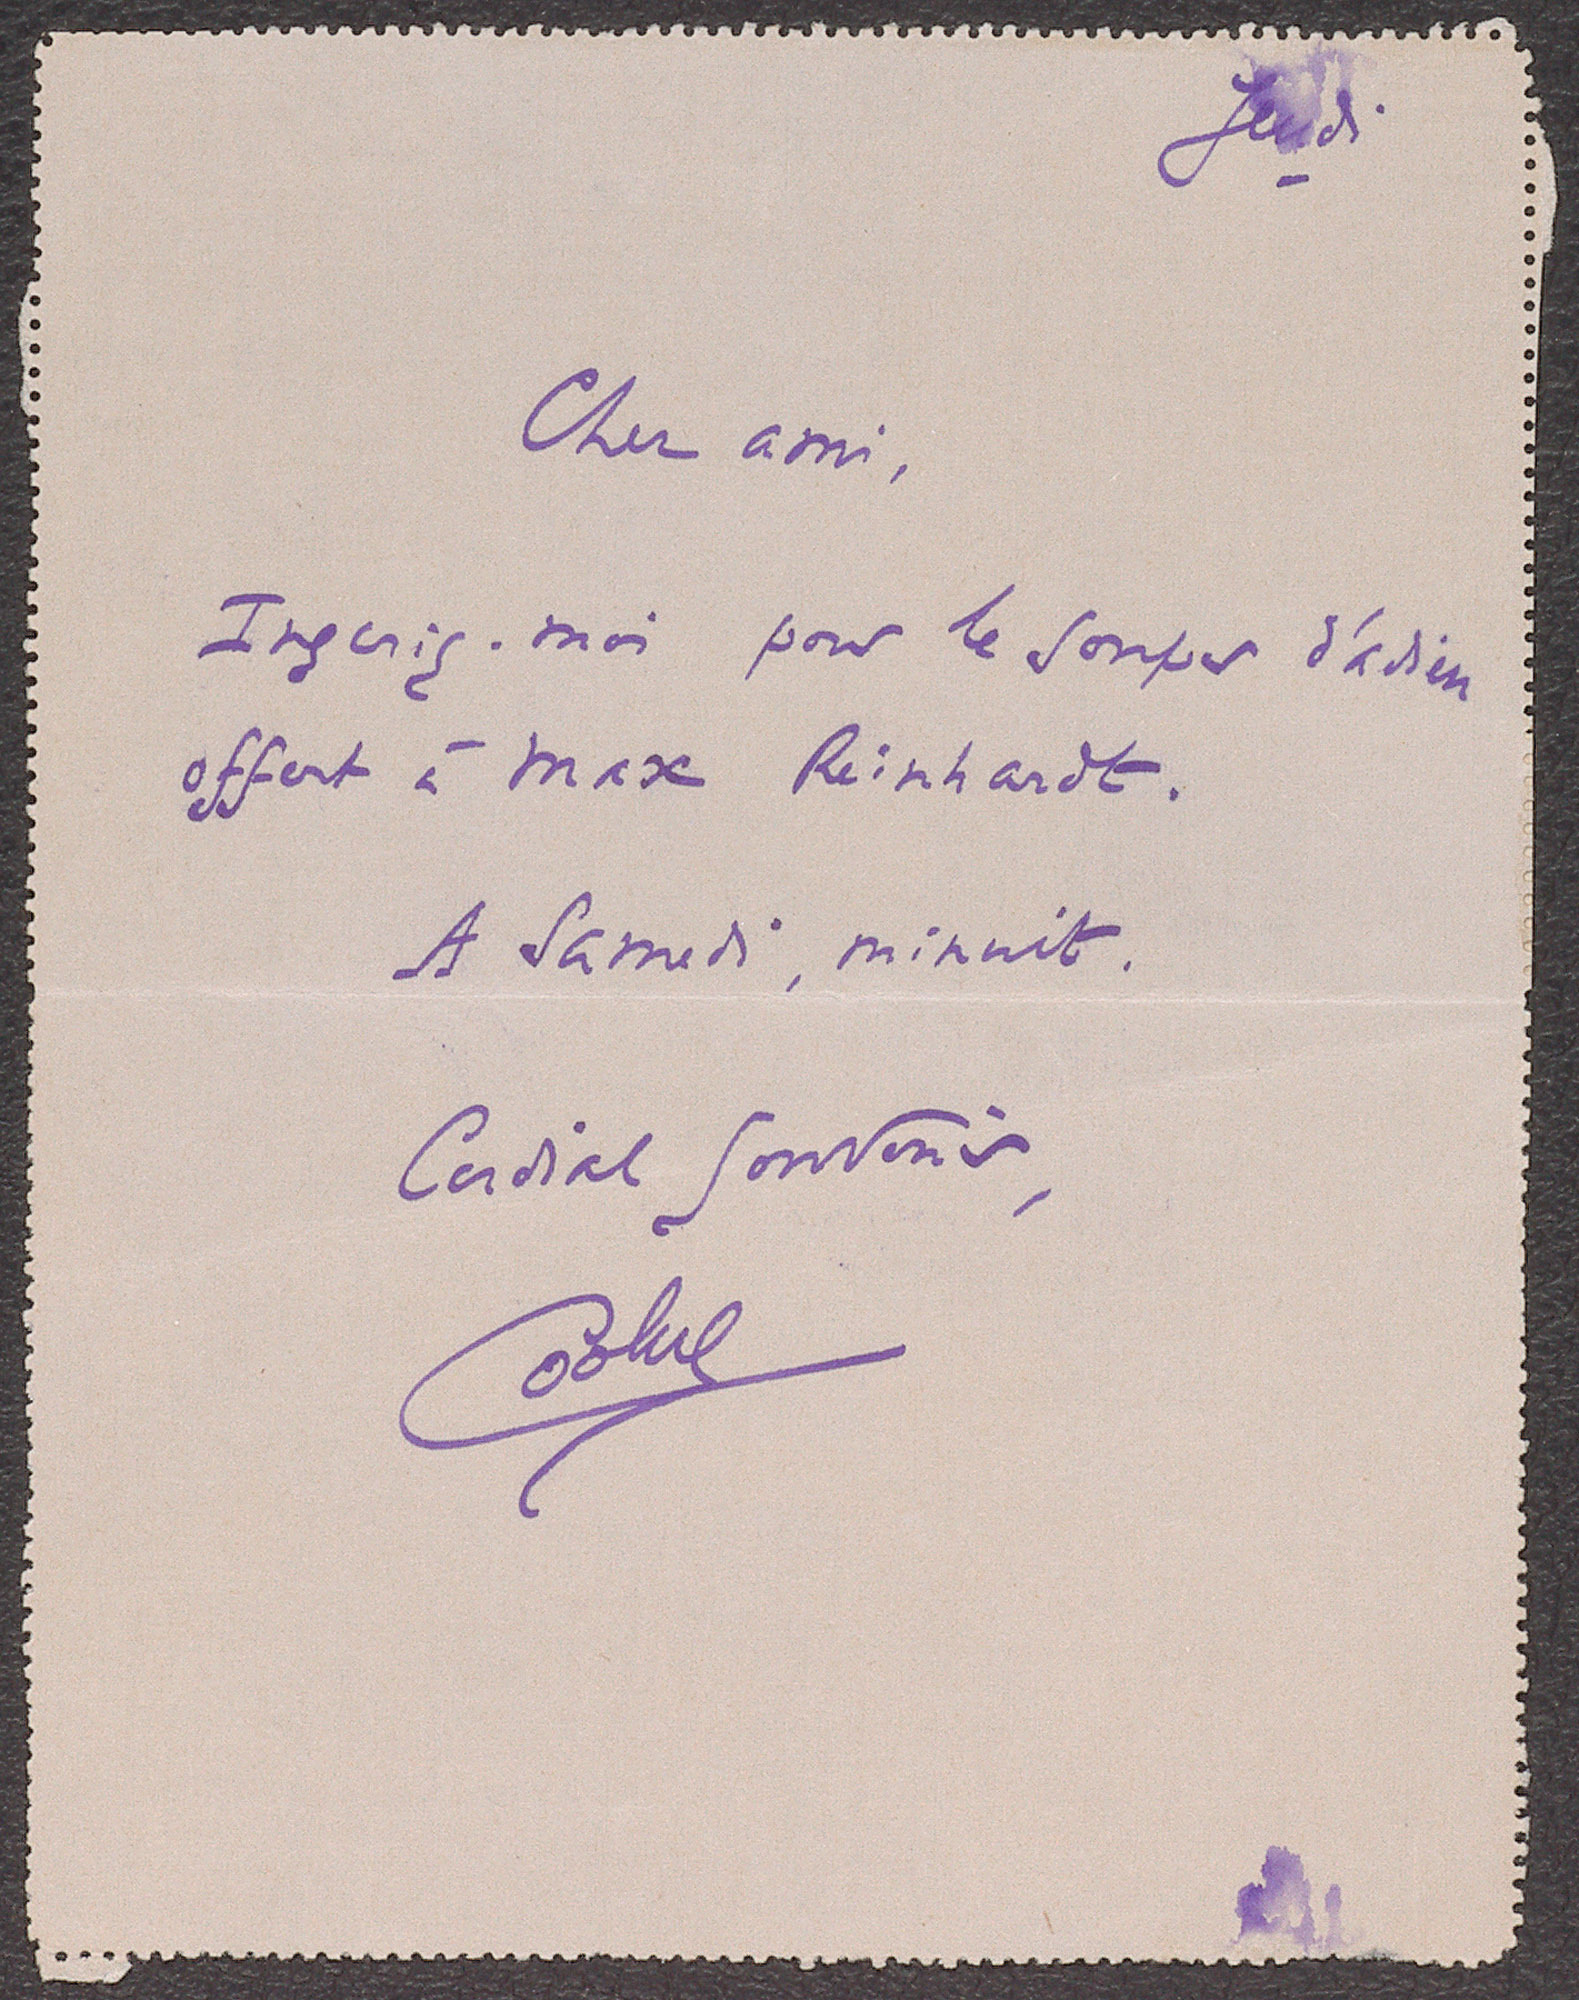 Jeudi
Cher ami,
Inscriz-moi pour le souper d'adieu
offert à Max Reinhardt.
A Samedi, minuit.
Cordial souvenir,